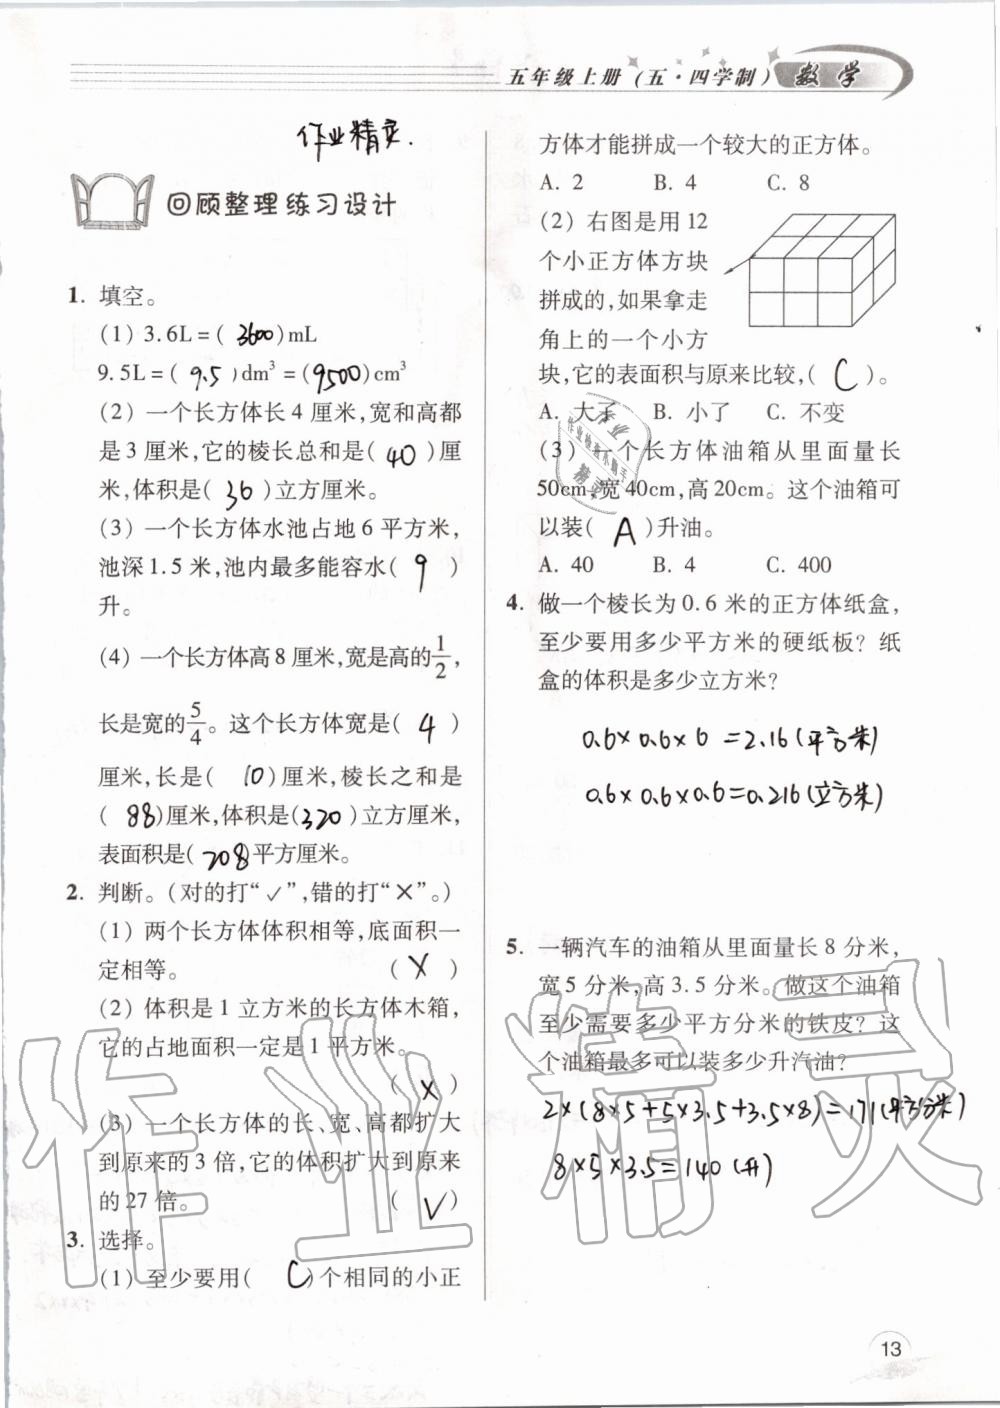 五年级上册(五·四学制) 数学
作业精灵.
回顾整理练习设计
1. 填空。
(1) 3.6L=( 3600 )mL
9.5L=( 9.5 )dm³=(9500)cm³
(2) 一个长方体长4厘米,宽和高都
是3厘米,它的棱长总和是( 40 )厘
米,体积是( 36 )立方厘米。
(3) 一个长方体水池占地6平方米,
池深1.5米,池内最多能容水( 9 )
升。
(4) 一个长方体高8厘米,宽是高的1/2,
长是宽的5/4。这个长方体宽是( 4 )
厘米,长是( 10 )厘米,棱长之和是
( 88 )厘米,体积是(320)立方厘米,
表面积是( 208 )平方厘米。
2. 判断。(对的打“✓”,错的打“×”。)
(1) 两个长方体体积相等,底面积一
定相等。 ( × )
(2) 体积是1立方米的长方体木箱,
它的占地面积一定是1平方米。
( × )
(3) 一个长方体的长、宽、高都扩大
到原来的3倍,它的体积扩大到原来
的27倍。 ( √ )
3. 选择。
(1) 至少要用( C )个相同的小正
方体才能拼成一个较大的正方体。
A. 2 B. 4 C. 8
(2) 右图是用12
个小正方体方块
拼成的,如果拿走
角上的一个小方
块,它的表面积与原来比较,( C )。
A. 大了 B. 小了 C. 不变
(3) 一个长方体油箱从里面量长
50cm,宽40cm,高20cm。这个油箱可
以装( A )升油。
A. 40 B. 4 C. 400
4. 做一个棱长为0.6米的正方体纸盒,
至少要用多少平方米的硬纸板?纸
盒的体积是多少立方米?
0.6×0.6×6=2.16(平方米)
0.6×0.6×0.6=0.216(立方米)
5. 一辆汽车的油箱从里面量长8分米,
宽5分米,高3.5分米。做这个油箱
至少需要多少平方分米的铁皮?这
个油箱最多可以装多少升汽油?
2×(8×5+5×3.5+3.5×8)=171(平方分米)
8×5×3.5=140(升)
作业精灵
13